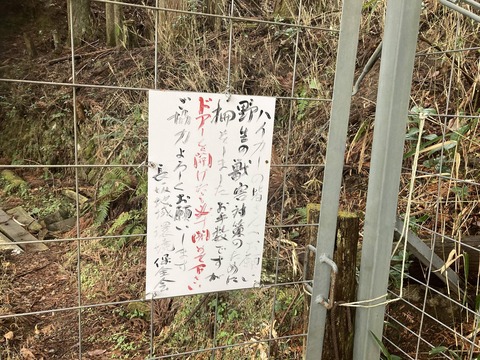 ハイカーの皆
野生の獣害対策のために
柵をしました お手数ですが
ドアーを開けたら必ず閉めて下さい
ご協力よろしくお願いします
保全会